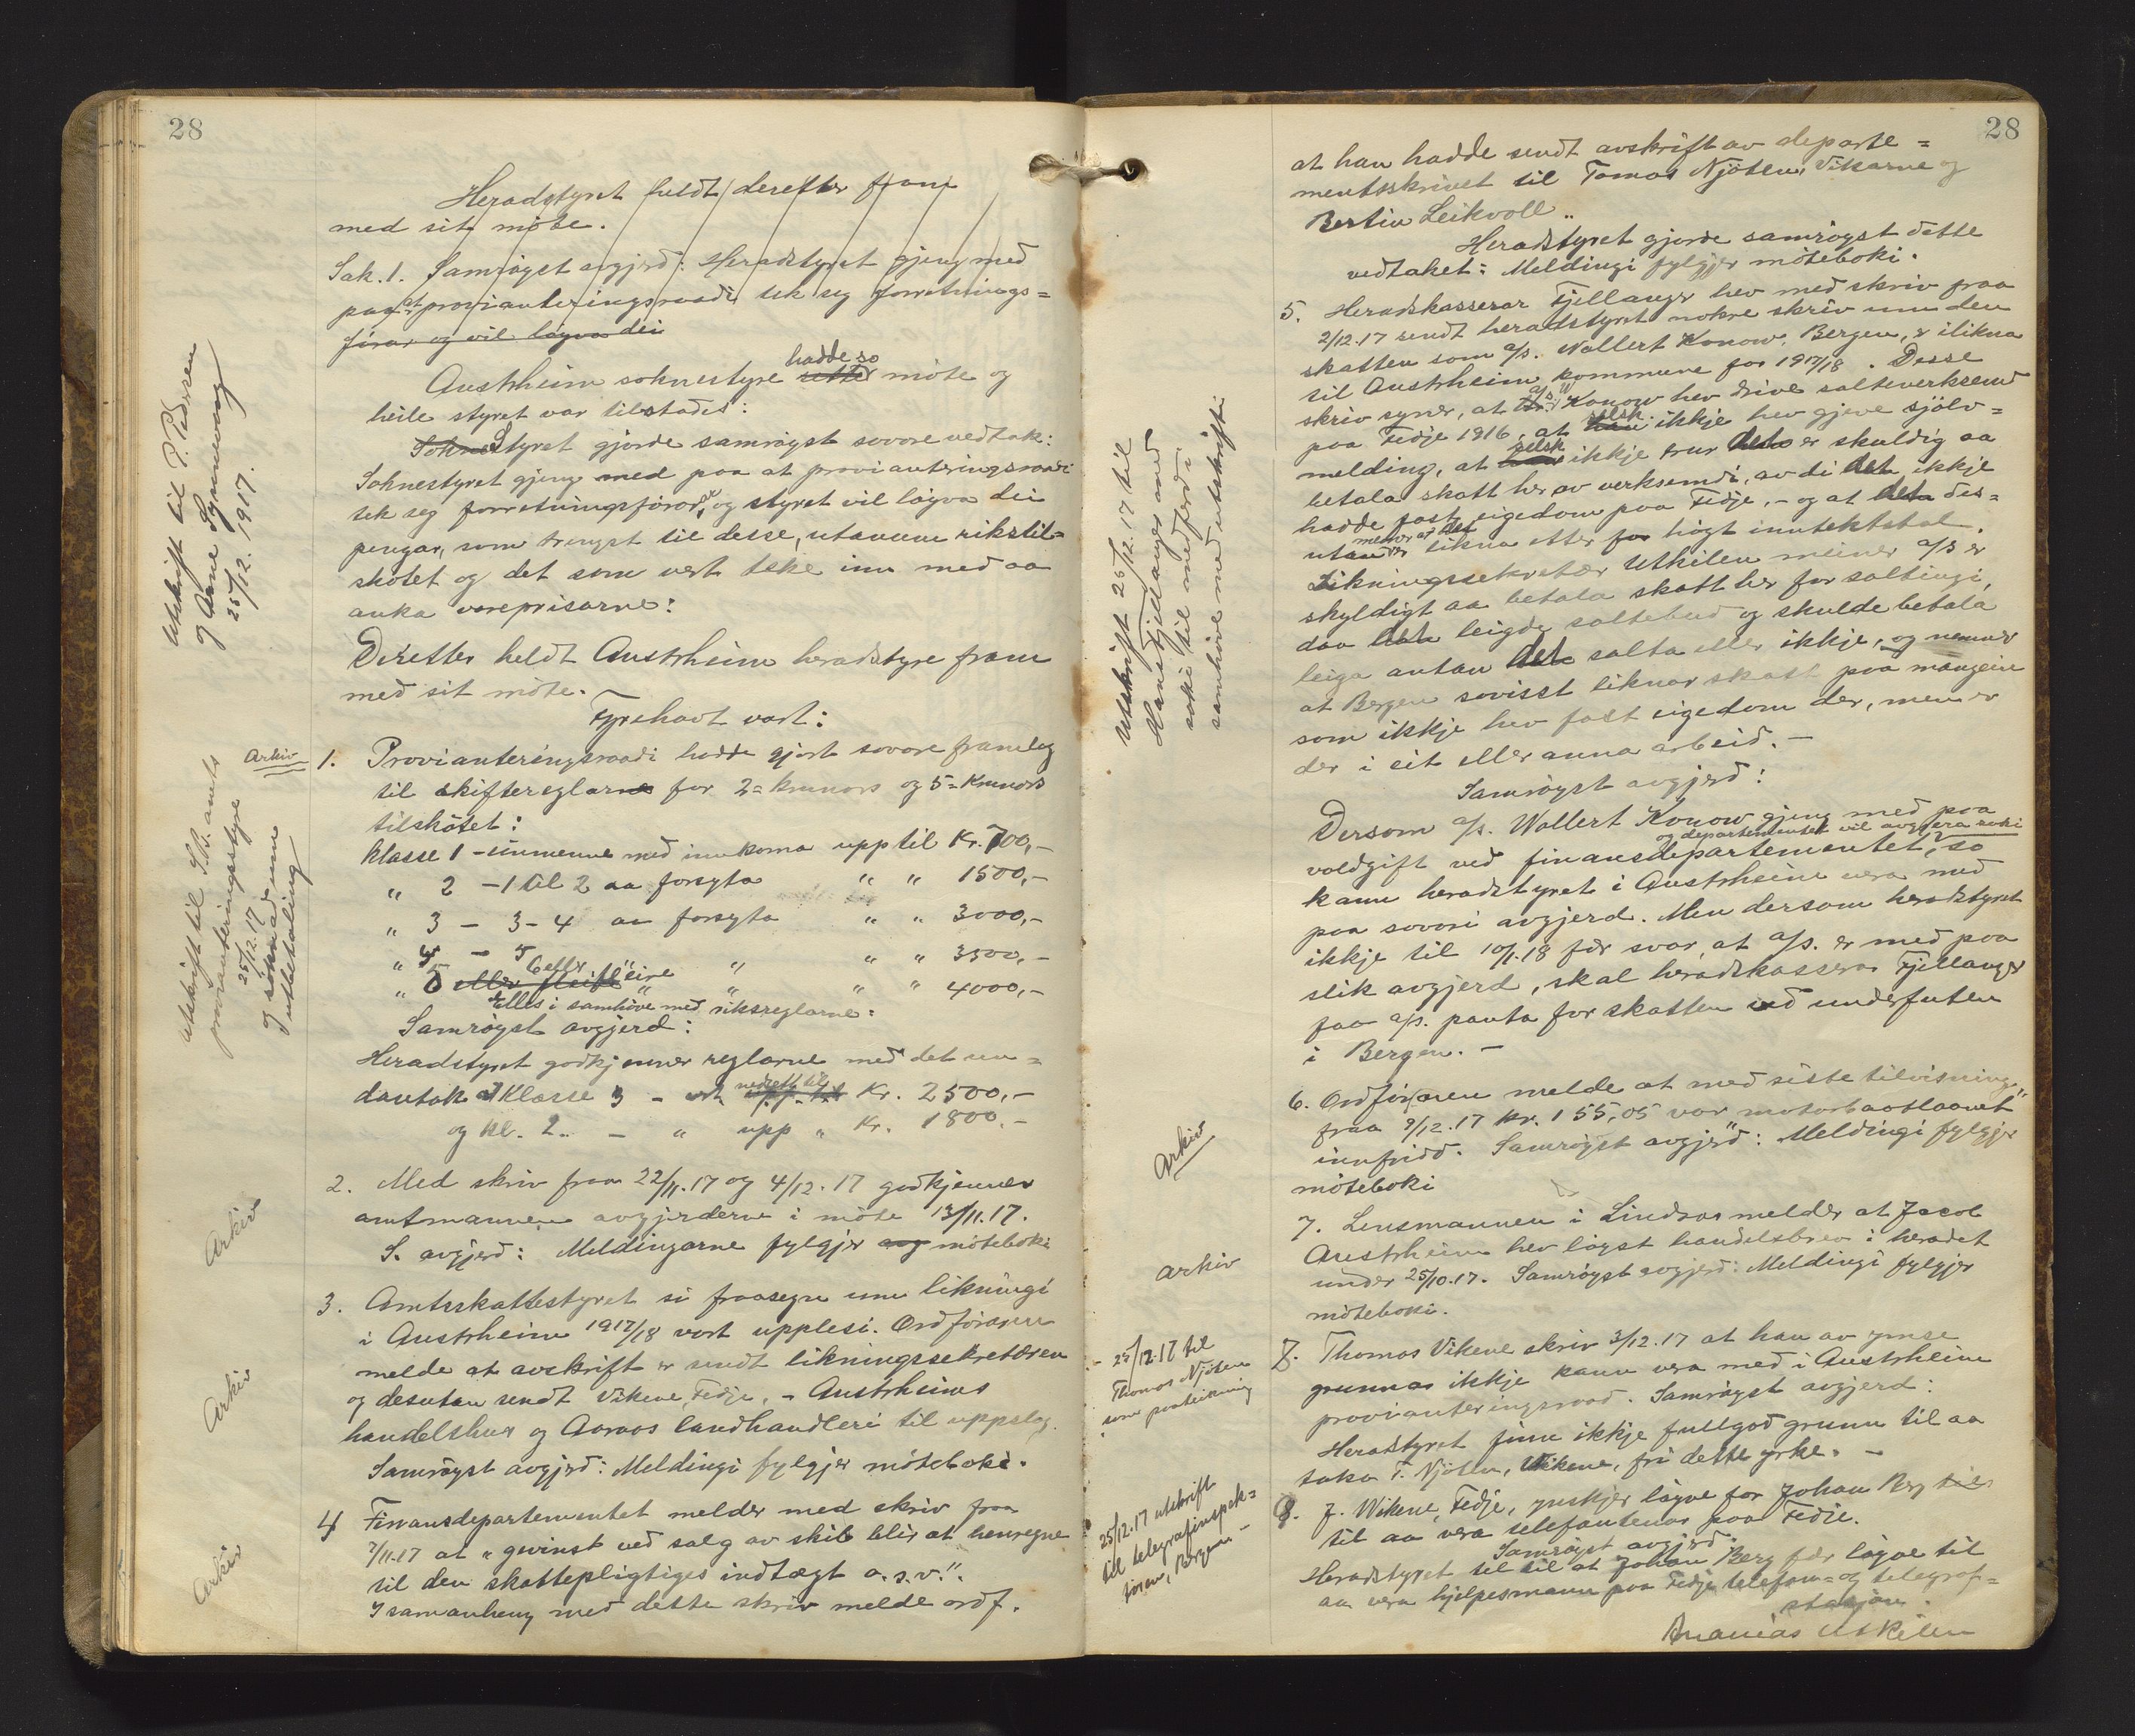 28
Heradstyret heldt deretter fram
med sit möte.
Sak. 1. Samröyst avgjerd: Heradstyret gjeng med
paa at provianteringsraadi tek seg forretnings=
förar og vil løyva dei
Austrheim soknestyre hadde so möte og
heile styret var tilstades:
Styret gjorde samröyst sovore vedtak:
Soknestyret gjeng med paa at provianteringsraadi
tek seg forretningsförar, og styret vil löyva dei
pengar, som trengst til desse, utanum rikstil=
skotet og det som vert teke inn med aa
auka vareprisarne:
Deretter heldt Austrheim heradstyre fram
med sit möte.
Fyrehavt vart:
1. Provianteringsraadi hadde gjort sovore framlag
til skiftereglarne for 2= krunors og 5= krunors
tilskötet:
Klasse 1 - einmenne med innkoma upp til Kr. 700,-
" 2 - 1 til 2 aa forsyta " " 1500,-
" 3 - 3-4 aa forsyta " " 3000,-
" 4 - 5 " " " 3500,-
" 5 6 eller fleire " " " " 4000,-
Elles i samhöve med riksreglarne:
Samröyst avgjerd:
Heradstyret godkjenner reglarne med det un=
dantak at Klasse 3 - vert nedsett til Kr. 2500,-
og kl. 2. - " upp " Kr. 1800.-
2. Med skriv fraa 22/11.17 og 4/12.17 godkjenner
amtmannen avgjerderne i möte 13/11.17.
S. avgjerd: Meldingarne fylgjer möteboki
3. Amtsskattestyret si fraasegn um likningi
i Austrheim 1917/18 vart upplesi. Ordföraren
melde at avskrift er sendt likningssekretæren
og desutan sendt Vikene, Fedje, - Austrheims
handelshus og Aaraas landhandleri til uppslag.
Samröyst avgjerd: Meldingi fylgjer möteboki.
4 Finansdepartementet melder med skriv fraa
7/11.17 at "gevinst ved salg av skib blir at henregne
til den skattepligtiges indtægt o.s.v.".
I samanheng med dette skriv melde ordf.
Utskrift til P. Pedersen
og Arne Synnevaag
25/12. 1917.
Arkiv
Utskrift til S.B. amts
provianteringsstyre
25/12.17
og söknad um
utbetaling
Arkiv
Arkiv
Arkiv
28
at han hadde sendt avskrift av departe=
mentsskrivet til Tomas Njöten, Vikarne og
Bertin Leikvoll.
Heradstyret gjorde samröyst dette
vedtaket: Meldingi fylgjer möteboki.
5. Heradskasserar Fjellanger hev med skriv fraa
2/12.17 sendt heradstyret nokre skriv um den
skatten som a/s. Wollert Konow, Bergen, er ilikna
til Austrheim kommune for 1917/18. Desse
skriv syner, at a/s W. Konow hev drive salteverksemd
paa Fedje 1916, at selsk. ikkje hev gjeve sjölv=
melding, at selsk. ikkje trur det er skuldig aa
betala skatt her av verksemdi, av di det ikkje
hadde fast eigedom paa Fedje, - og at det des=
utan meiner at det er likna etter for högt inntektstal.
Likningssekretær Uthilen meiner a/s er
skyldigt aa betala skatt her for saltingi,
daa det leigde saltebud og skulde betala
leiga antan det salta eller ikkje, og nemner
at Bergen sovisst liknar skatt paa mangein
som ikkje hev fast eigedom der, men er
der i eit eller anna arbeid. -
Samröyst avgjerd:
Dersom a/s. Wollert Konow gjeng med paa
voldgift ved finansdepartementet, og departementet vil avgjera saki, so
kann heradstyret i Austrheim vera med
paa sovori avgjerd. Men dersom heradstyret
ikkje til 10/1.18 fær svar, at a/s. er med paa
slik avgjerd, skal heradskasserar Fjellanger
faa a/s. panta for skatten ved underfuten
i Bergen. -
6. Ordföraren melde at med siste tilvisning
fraa 9/12.17 kr. 155,05 var "motorbaatlaanet"
innfridd. Samröyst avgjerd: Meldingi fylgjer
möteboki
7. Lensmannen i Lindaas melder at Jacob
Austrheim hev löyst handelsbrev i heradet
under 25/10.17. Samröyst avgjerd: Meldingi fylgjer
möteboki.
8. Thomas Vikene skriv 3/12.17 at han av ymse
grunnar ikkje kann vera med i Austrheim
provianteringsraad. Samröyst avgjerd:
Heradstyret finn ikkje fullgod grunn til aa
taka T. Njöten, Vikene, fri dette yrke. -
9. J. Wikene, Fedje, ynskjer löyve for Johan Berg
til aa vera telefontenar paa Fedje.
Samröyst avgjerd:
Heradstyret til til at Johan Berg fær löyve til
aa vera hjelpesmann paa Fedje telefon= og telegraf=
stasjon.
Ananias Utkilen
Utskrift 25/12.17 til
Hans Fjellanger med
saki til medferd i
samhöve med utskrifti
Arkiv
Arkiv
25/12.17 til
Thomas Njöten
som paateikning
25/12.17 utskrift
til telegrafinspek=
tören, Bergen -